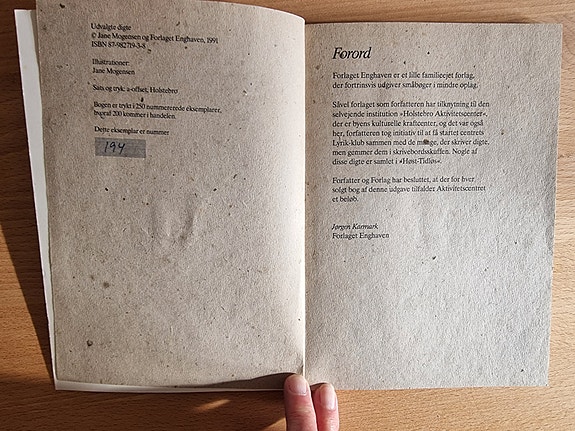 Udvalgte digte
© Jane Mogensen og Forlaget Enghaven, 1991
ISBN 87-982719-3-8
Illustrationer:
Jane Mogensen
Sats og tryk: a-offset, Holstebro
Bogen er trykt i 250 nummererede eksemplarer,
hvoraf 200 kommer i handelen.
Dette eksemplar er nummer
194
Forord
Forlaget Enghaven er et lille familieejet forlag,
der fortrinsvis udgiver småbøger i mindre oplag.
Såvel forlaget som forfatteren har tilknytning til den
selvejende institution »Holstebro Aktivitetscenter«,
der er byens kulturelle kraftcenter, og det var også
her, forfatteren tog initiativ til at få startet centrets
Lyrik-klub sammen med de mange, der skriver digte,
men gemmer dem i skrivebordsskuffen. Nogle af
disse digte er samlet i »Høst-Tidløs«.
Forfatter og Forlag har besluttet, at der for hver
solgt bog af denne udgave tilfalder Aktivitetscentret
et beløb.
Jørgen Kærmark
Forlaget Enghaven